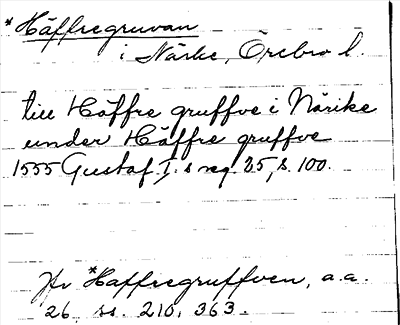 *Häffregruvan
i Närke, Örebro l.
till Häffre gruffve i Närike
under Häffre gruffve
1555 Gustaf I.s reg. 25, s. 100.
Jfr *Haffregruffven, a.a.
26, ss. 210, 363.